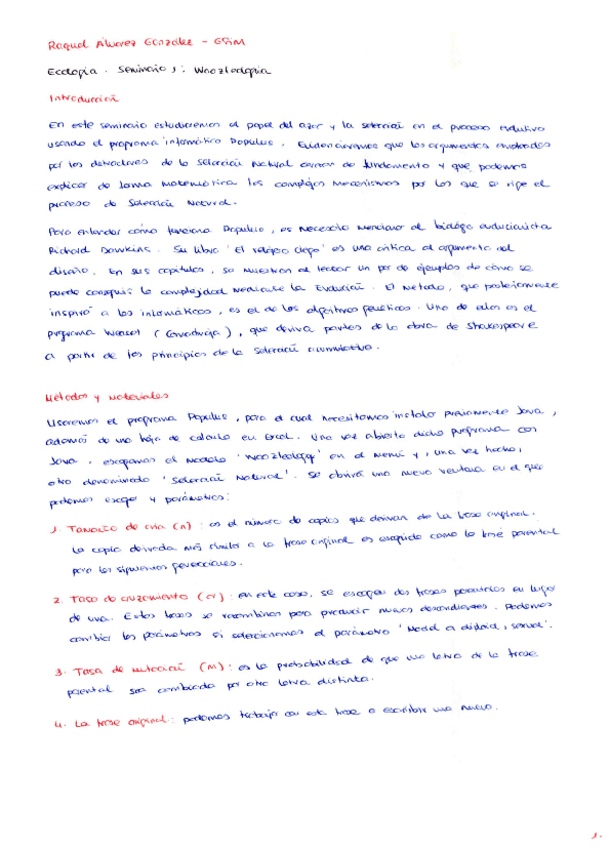 Raquel Álvarez González - G5IM
Ecología. Seminario 1: Woozleología
Introducción
En este seminario estudiaremos el papel del azar y la selección en el proceso evolutivo
usando el programa informático Populus. Evidenciaremos que los argumentos empleados
por los detractores de la Selección Natural carecen de fundamento y que podemos
explicar de forma matemática los complejos mecanismos por los que se rige el
proceso de Selección Natural.
Para entender cómo funciona Populus, es necesario mencionar al biólogo evolucionista
Richard Dawkins. Su libro 'El relojero ciego' es una crítica al argumento del
diseño. En sus capítulos, se muestran al lector un par de ejemplos de cómo se
puede conseguir la complejidad mediante la Evolución. El método, que posteriormente
inspiró a los informáticos, es el de los algoritmos genéticos. Uno de ellos es el
programa Weasel (Comadreja), que deriva partes de la obra de Shakespeare
a partir de los principios de la selección acumulativa.
Métodos y materiales
Usaremos el programa Populus, para el cual necesitamos instalar previamente Java,
además de una hoja de cálculo en Excel. Una vez abierto dicho programa con
Java, escogemos el modelo 'Woozleology' en el menú y, una vez hecho,
otro denominado 'Selección Natural'. Se abrirá una nueva ventana en el que
podemos escoger 4 parámetros:
1. Tamaño de cría (n): es el número de copias que derivan de la frase original.
La copia derivada más similar a la frase original es escogida como la frase parental
para las siguientes generaciones.
2. Tasa de cruzamiento (cr): en este caso, se escogen dos frases parentales en lugar
de una. Estas frases se recombinan para producir nuevos descendientes. Podemos
cambiar los parámetros si seleccionamos el parámetro 'Model a diploid, sexual'.
3. Tasa de mutación (M): es la probabilidad de que una letra de la frase
parental sea cambiada por otra letra distinta.
4. La frase original: podemos trabajar con esta frase o escribir una nueva.
1.